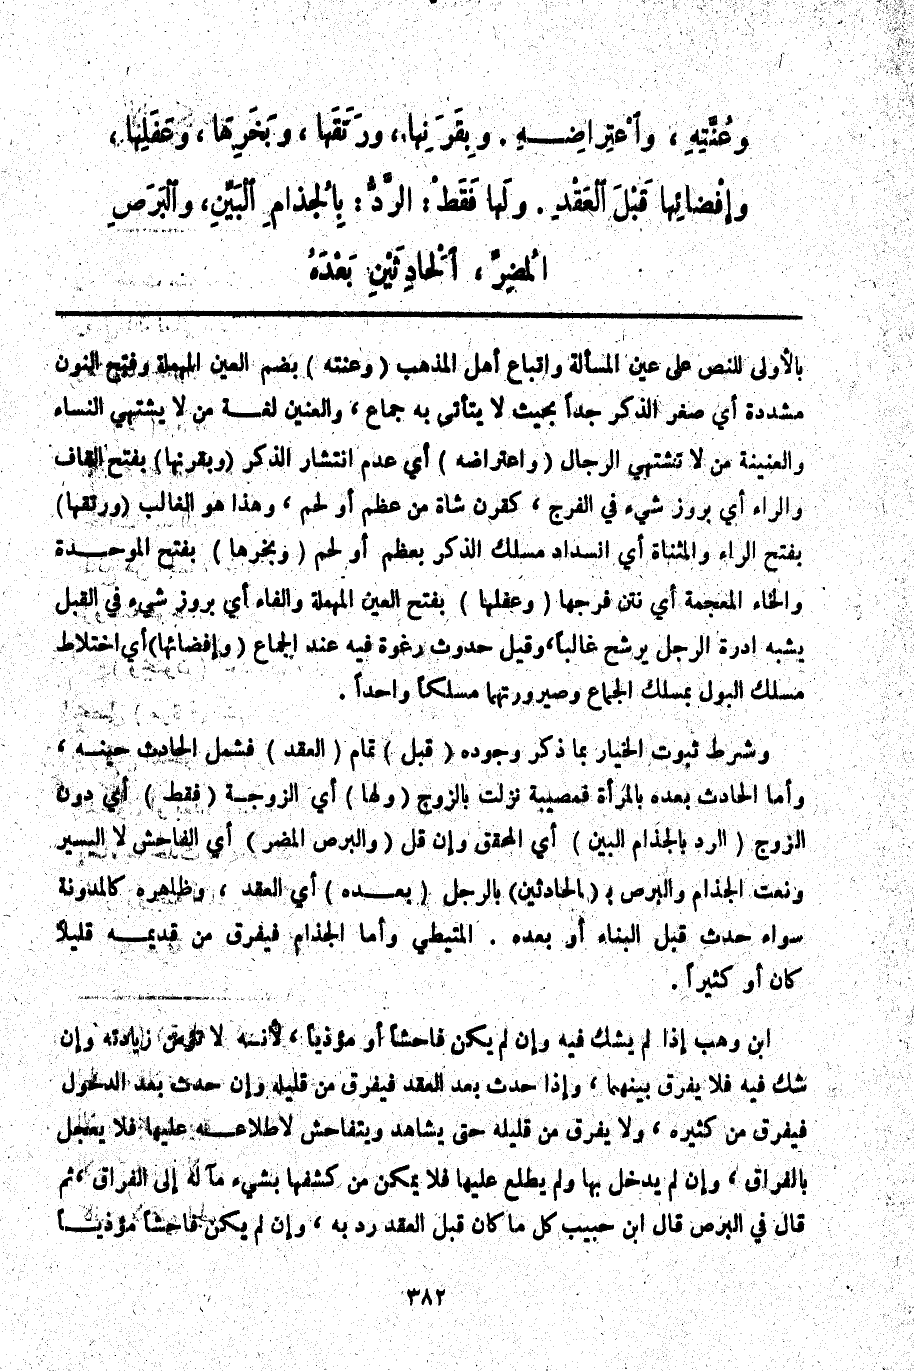 وَعُنَّتِهِ ، وَٱعْتِرَاضِـــهِ . وبِقَرَنِها ، ورَتَقِها ، وبَخَرِها ، وعَفَلِها ،
وإفْضائِها قَبْلَ ٱلْعَقْدِ . ولَها فَقَطْ : الرَّدُّ : بِالْجذامِ ٱلْبَيِّنِ ، وٱلْبَرَصِ
المُضِرِّ ، ٱلْحادِثَيْنِ بَعْدَهُ
بالأولى للنص على عين المسألة واتباع أهل المذهب ( وعنته ) بضم العين المهملة وفتح النون
مشددة أي صغر الذكر جداً بحيث لا يتأتى به جماع ، والعنين لغـــة من لا يشتهي النساء
والعنينة من لا تشتهي الرجال ( واعتراضه ) أي عدم انتشار الذكر (وبقرنها) بفتح القاف
والراء أي بروز شيء في الفرج ، كقرن شاة من عظم أو لحم ، وهذا هو الغالب (ورتقها)
بفتح الراء والمثناة أي انسداد مسلك الذكر بعظم أو لحم ( وبخرها ) بفتح الموحـــدة
والخاء المعجمة أي نتن فرجها ( وعفلها ) بفتح العين المهملة والفاء أي بروز شيء في القبل
يشبه ادرة الرجل يرشح غالباً،وقيل حدوث رغوة فيه عند الجماع ( وإفضائها)أي اختلاط
مسلك البول بمسلك الجماع وصيرورتهما مسلكاً واحداً .
وشرط ثبوت الخيار بما ذكر وجوده ( قبل ) تمام ( العقد ) فشمل الحادث حينـــه ،
وأما الحادث بعده بالمرأة فمصيبة نزلت بالزوج ( ولها ) أي الزوجـــة ( فقط ) أي دون
الزوج ( الرد بالجذام البين ) أي المحقق وإن قل ( والبرص المضر ) أي الفاحش لا اليسير
ونعت الجذام والبرص بـ ( الحادثين) بالرجل ( بعـــده ) أي العقد ، وظاهره كالمدونة
سواء حدث قبل البناء أو بعده . المتيطي وأما الجذام فيفرق من قديمـــه قليلاً
كان أو كثيراً .
ابن وهب إذا لم يشك فيه وإن لم يكن فاحشاً أو مؤذياً ، لأنـــه لا تؤمن زيادته وإن
شك فيه فلا يفرق بينهما ، وإذا حدث بعد العقد فيفرق من قليله وإن حدث بعد الدخول
فيفرق من كثيره ، ولا يفرق من قليله حتى يشاهد ويتفاحش لاطلاعـــه عليها فلا يعجل
بالفراق ، وإن لم يدخل بها ولم يطلع عليها فلا يمكن من كشفها بشيء مآله إلى الفراق ،ثم
قال في البرص قال ابن حبيب كل ما كان قبل العقد رد به ، وإن لم يكن فاحشاً مؤذيـــاً
٣٨٢